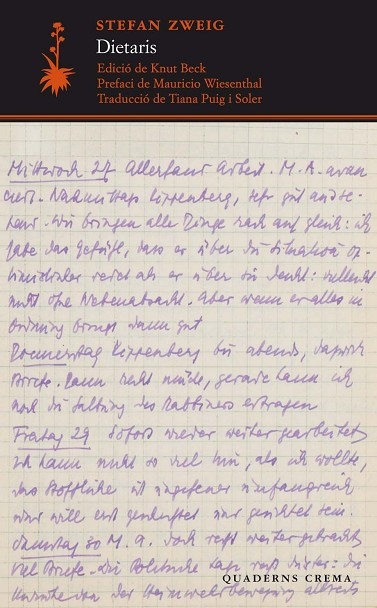 STEFAN ZWEIG
Dietaris
Edició de Knut Beck
Prefaci de Mauricio Wiesenthal
Traducció de Tiana Puig i Soler
Mittwoch 27 Allerhand Arbeit. M. A. avan
ciert. Nachmittags Kippenberg, sehr gut
wir bringen alle Dinge rasch auf gleich: ich
habe das Gefühl, dass er über die Situation op-
timistischer redet als er über sie denkt: vielleicht
nicht ohne Nebenabsicht. Aber wenn er alles in
Ordnung bringt dann gut
Donnerstag Kippenberg bis abends, dazwisch
Briefe. Dann recht müde, gerade kann ich
noch die des Rabbiners ertragen
Freitag 29 Sofort wieder weiter gearbeitet
Ich kann nicht so viel tun, als ich wollte,
das Stoffliche ist ungeheuer umfangreich
und will erst und gesichtet sein.
Samstag 30 M. A. doch recht weiter gebracht
Viel Briefe. Die Politische Lage recht düster: die
von der Heimwehrbewegung
QUADERNS CREMA